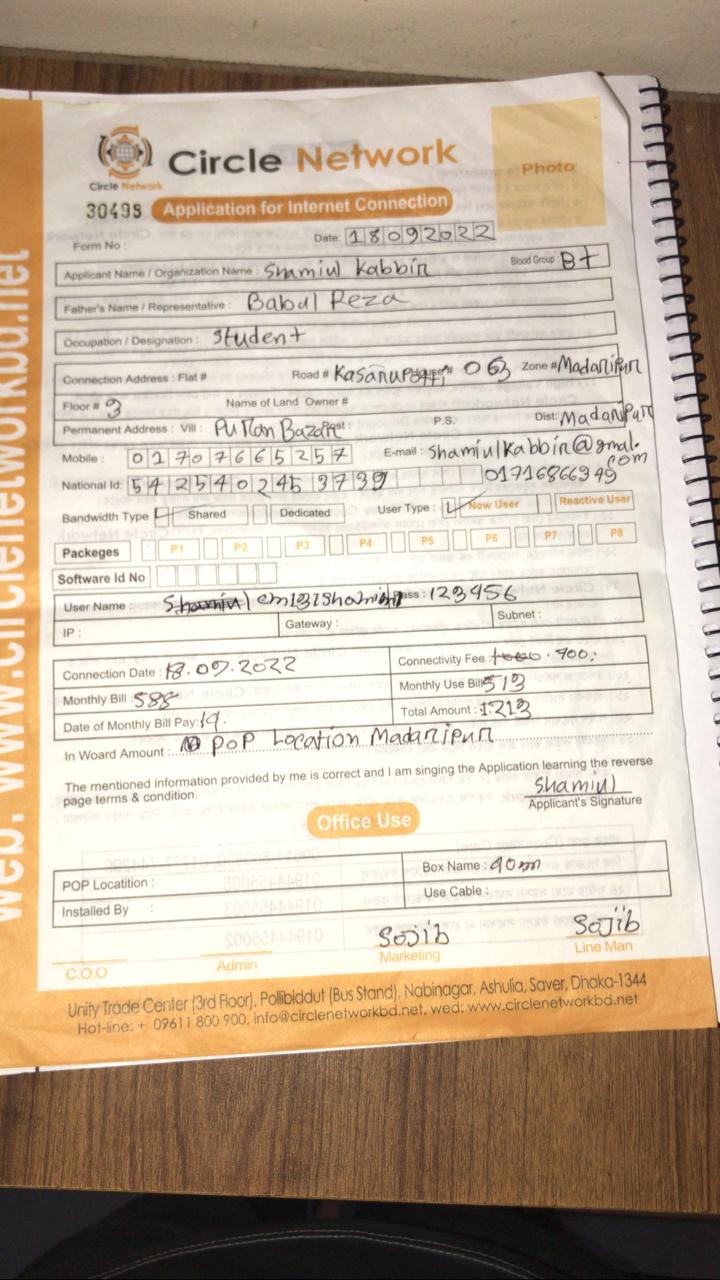 Circle Network
Circle Network
Photo
30498
Application for Internet Connection
Form No :
Date: 18092022
Applicant Name / Organization Name : Shamiul Kabbir Blood Group : B+
Father's Name / Representative : Babul Reza
Occupation / Designation : Student
Connection Address : Flat # Road # House # 063 Zone # Madaripur
Floor # 3 Name of Land Owner #
Permanent Address : Vill : Puran Bazar Post : P.S. Dist: Madaripur
Mobile : 01707665257 E-mail : Shamiulkabbir@gmal.com
National Id: 5425402453739 01716866349
Bandwidth Type Shared Dedicated User Type : New User Reactive User
Packeges P1 P2 P3 P4 P5 P6 P7 P8
Software Id No
User Name : Pass : 123456
IP : Gateway : Subnet :
Connection Date : 18.09.2022 Connectivity Fee : 700.
Monthly Bill : 588 Monthly Use Bill 513
Date of Monthly Bill Pay: 19. Total Amount : 1213
In Woard Amount : POP Location Madaripur
The mentioned information provided by me is correct and I am singing the Application learning the reverse
page terms & condition.
Shamiul
Applicant's Signature
Office Use
POP Locatition : Box Name :
Installed By : Use Cable :
Sojib Sojib
C.O.O Admin Marketing Line Man
Unity Trade Center (3rd Floor), Pollibiddut (Bus Stand), Nabinagar, Ashulia, Saver, Dhaka-1344
Hot-line: + 09611 800 900, info@circlenetworkbd.net, wed: www.circlenetworkbd.net
web: www.circlenetworkbd.net